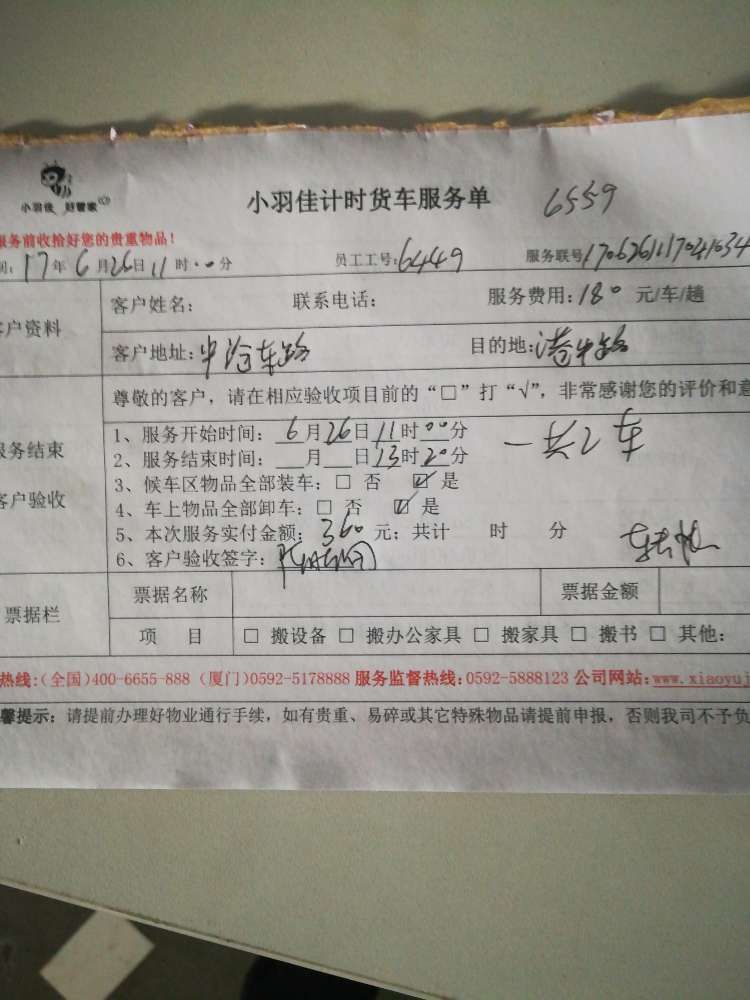 小羽佳 好管家
小羽佳计时货车服务单 6559
服务前收拾好您的贵重物品!
间: 17年6月26日11时00分 员工工号: 6449 服务联号
客户姓名: 联系电话: 服务费用: 180 元/车/趟
客户资料
客户地址: 目的地:
尊敬的客户,请在相应验收项目前的“□”打“√”,非常感谢您的评价和意
1、服务开始时间: 6月26日11时00分 一共2车
服务结束
2、服务结束时间: 月 日13时20分
3、候车区物品全部装车: □ 否 ☑ 是
客户验收
4、车上物品全部卸车: □ 否 ☑ 是
5、本次服务实付金额: 360 元; 共计 时 分
6、客户验收签字:
票据栏
票据名称 票据金额
项 目 □ 搬设备 □ 搬办公家具 □ 搬家具 □ 搬书 □ 其他:
热线:(全国)400-6655-888 (厦门)0592-5178888 服务监督热线:0592-5888123 公司网站:www.xiaoyuj
馨提示: 请提前办理好物业通行手续,如有贵重、易碎或其它特殊物品请提前申报,否则我司不予负